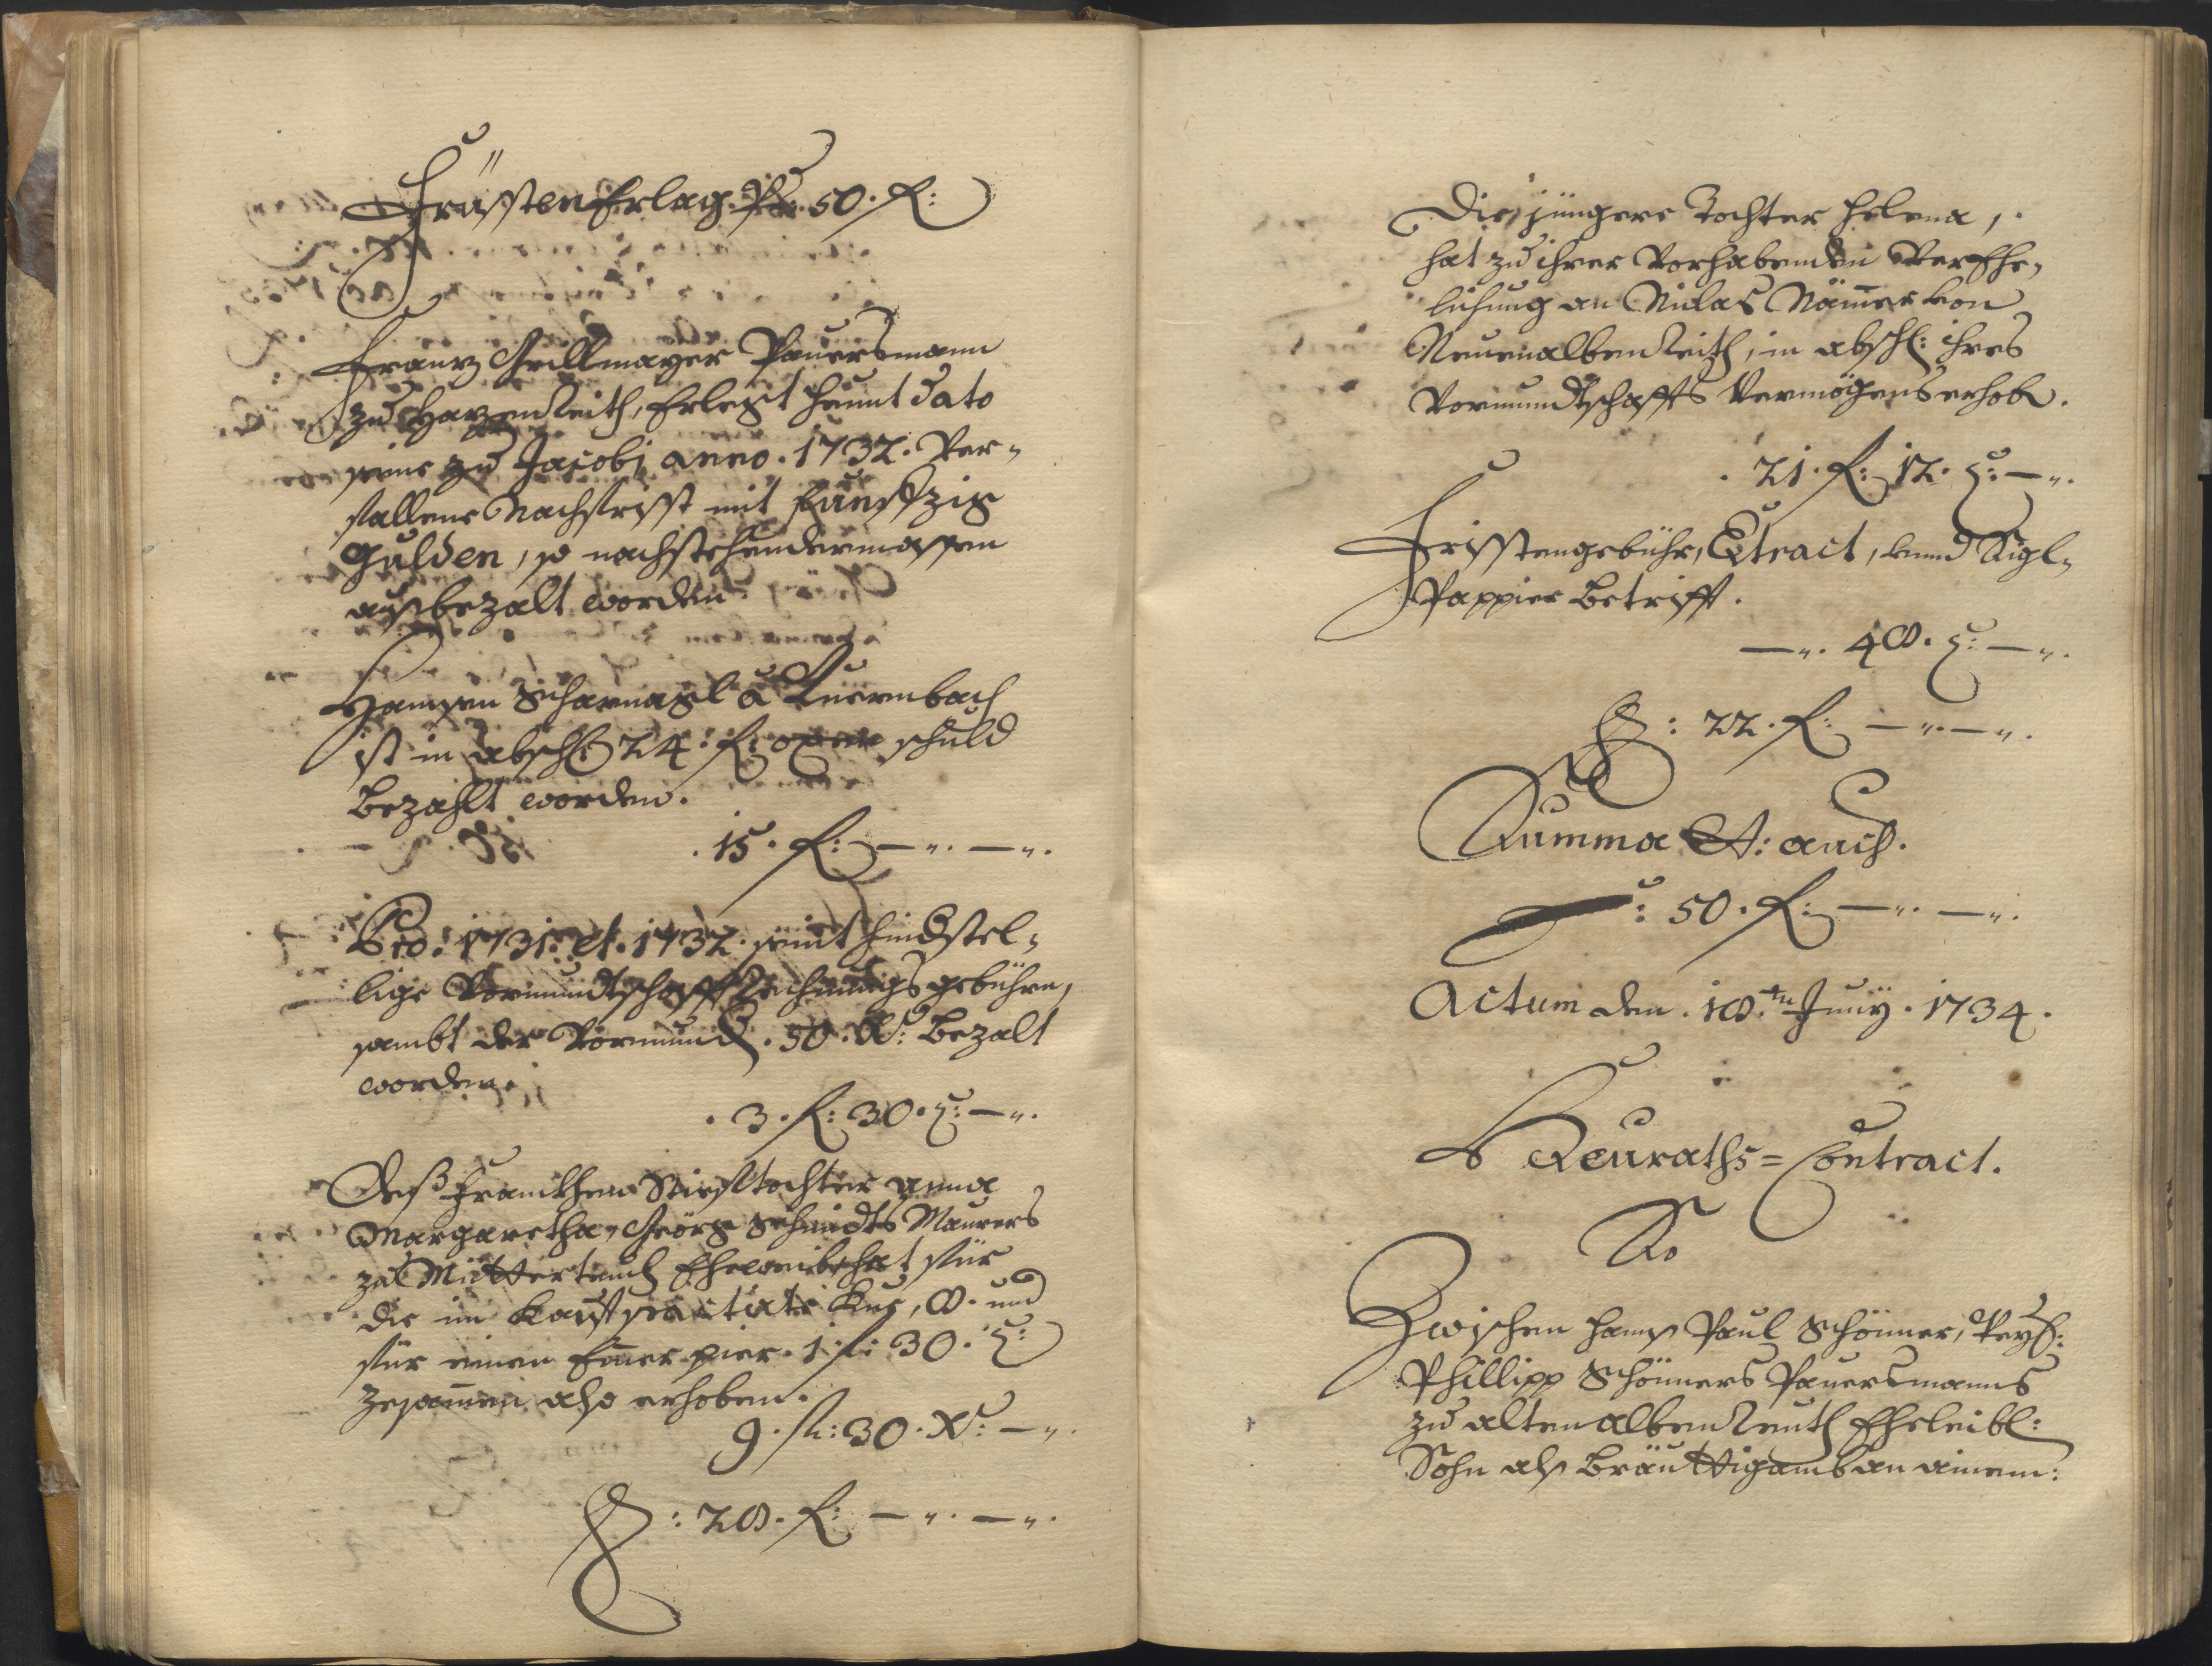 Fristen Erlag Pr. 50. f:
Franz Grillmayer Paursmann
zu Hazenreith, Erlegt heunt dato
seine zu Jacobi anno. 1732. Ver-
fallene Nachfrisst mit Fünffzig
Gulden, so nachstehendermassen
ausbezalt worden
Hannsen Scharnagl à Luernbach
ist in abschl 24. f: schuld
bezahlt worden.
. 15. f: — ". — ".
Pro. 1731. et. 1732. seint hindstel-
lige Vormundtschafft Rechnungs gebühren,
sambt der Vormund. 50. X: bezalt
worden.
. 3. f: 30. X: — ".
Deß Franckhen Stiefftochter anna
Margaretha, Georg Schmidts Maurers
zu Mitterteich Eheweib hat für
die im Kauff Kue, 8. und
für einen Emer pier. 1. f: 30. X:
zesamen also erhoben.
9. fl: 30. X: — ".
S: 28. f: — ". — ".
Die jüngere Tochter Helena,
hat zu ihrer Vorhabenden Verehe-
lichung an Niclas Männer von
Neuenalbenreith, in abschl: ihres
Vormundtschaffts Vermögens erhob.
. 21. f: 12. X: — ".
Frisstengebühr, Extract, unnd Sigl-
Pappier betrifft.
— ". 48. X: — ".
S: 22. f: — ". — ".
Summa St: auch.
: 50. f: — ". — ".
Actum den. 18.ten Juny. 1734.
Heuraths= Contract.
So
Zwischen Hanns Paul Schönner, Weyl:
Phillipp Schönners Paursmanns
zu alten albenreuth Eheleibl:
Sohn als Bräuttigamb an ainem: